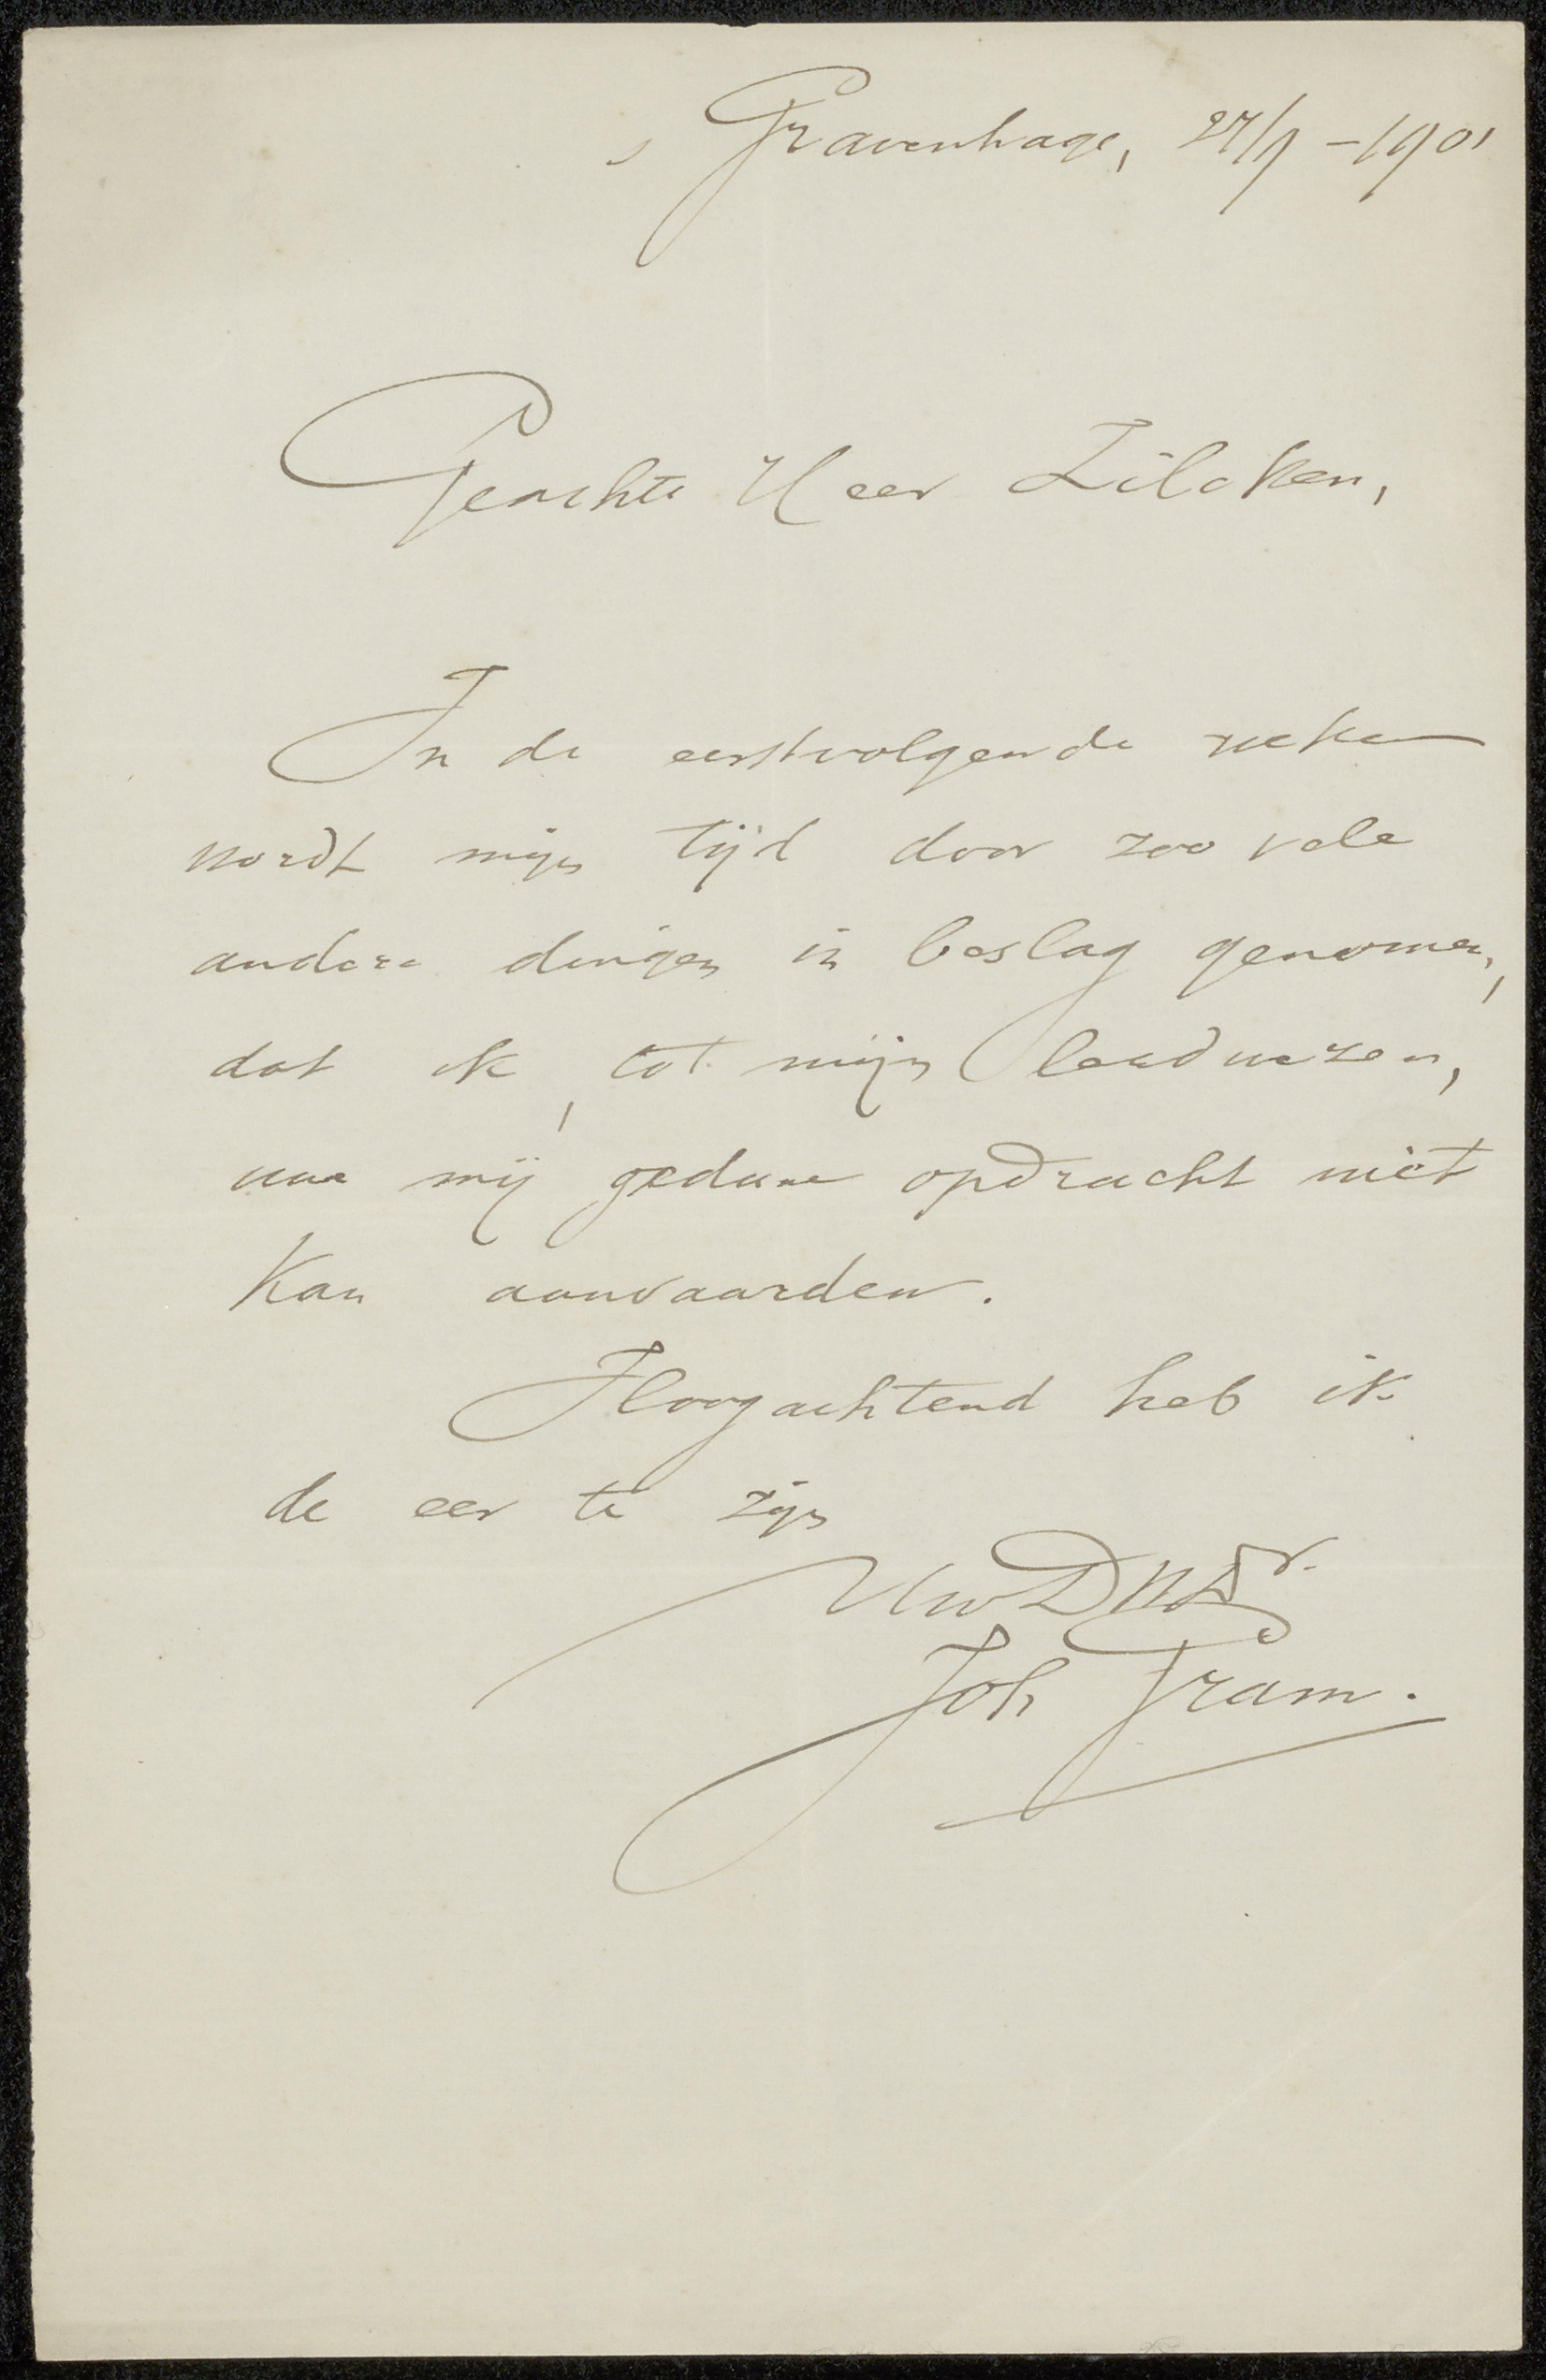 s Gravenhage, 27/9 - 1901
Geachte Heer Zilcken,
In de eerstvolgende weken
wordt mijn tijd door zoo vele
andere dingen in beslag genomen,
dat ik, tot mijn leedwezen,
une mij gedane opdracht niet
kan aanvaarden.
Hoogachtend heb ik
de eer te zijn
Uw DWDr.
Joh Gram.